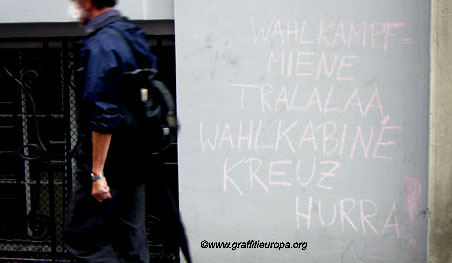 WAHLKAMPF=
MIENE
TRALALAA,
WAHLKABINE
KREUZ
HURRA!
©www.graffitieuropa.org